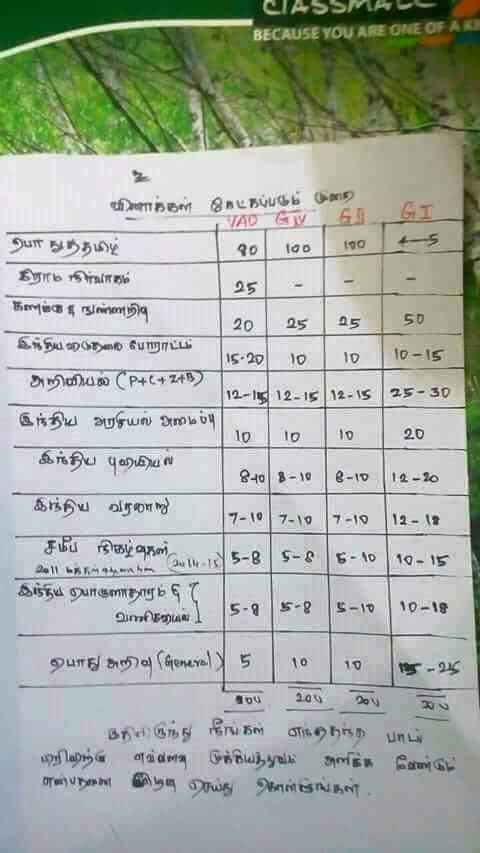 CLASSMATE
BECAUSE YOU ARE ONE OF A KI
2
வினாக்கள் கேட்கப்படும் முறை
VAO GIV GII GI
பொதுத்தமிழ் 80 100 100 4-5
கிராம நிர்வாகம் 25 - - -
கணக்கு & நுண்ணறிவு 20 25 25 50
இந்திய விடுதலை போராட்டம் 15-20 10 10 10-15
அறிவியல் (P+C+Z+B) 12-15 12-15 12-15 25-30
இந்திய அரசியல் அமைப்பு 10 10 10 20
இந்திய புவியியல் 8-10 8-10 8-10 12-20
இந்திய வரலாறு 7-10 7-10 7-10 12-18
சமீப நிகழ்வுகள் 5-8 5-8 5-10 10-15
2011 மக்கள் தொகை (2014-15)
இந்திய பொருளாதாரம் & 5-8 5-8 5-10 10-18
வணிகவியல்
பொது அறிவு (General) 5 10 10 15-25
200 200 200 200
இதிலிருந்து நீங்கள் எந்தெந்த பாடப்
எவ்வளவு முக்கியத்துவம் அளிக்க வேண்டும்
என்பதனை முடிவு செய்து கொள்ளுங்கள்.